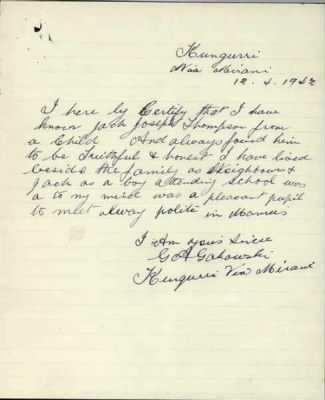 Kungurri
Via Mirani
12. 4. 1942
I here by Certify that I have
known Jack Joseph Thompson from
a Child And always found him
to be Truthful & honest I have lived
beside the family as Neighbours &
Jack as a boy attending School was
a to my mind was a pleasant pupil
to meet alway polite in Manners
I Am yours Sincere
G A Gakowski
Kungurri Via Mirani